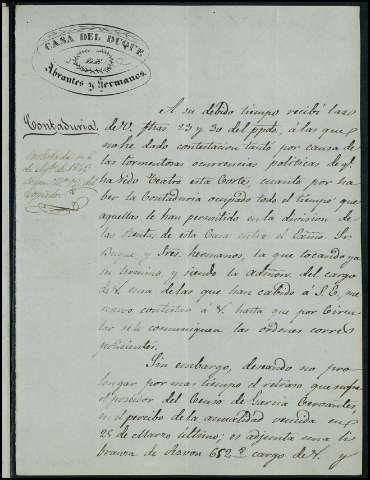 CASA DEL DUQUE
DE
Abrantes y Hermanos.
Contaduria.
Contestada en 6
de de 1845
A su debido tiempo recibí las
de V. fhas 23 y 30 del ppdo, á las que
no he dado contestacion tanto por causa de
las tormentosas ocurrencias politicas de q.
ha sido teatro esta Corte, cuanto por ha
ber la Contaduria ocupado todo el tiempo que
aquellas le han permitido en la division de
las Rentas de esta Casa entre el Exmo Sr
Duque, y Sres. hermanos, la que tocando ya
su termino, y siendo la admon. del cargo
de V. una de las que han cabido á S. E., me
contestar á V. hasta que por Circu
lar se le comuniquen las ordenes corres
pondientes.
Sin embargo, deseando no pro
longar por mas tiempo el retraso que sufre
el poseedor del Censo de Garcia Cervantes,
en el percibo de la anualidad vencida en
25 de Marzo ultimo; es adjunta una li
branza de Rsvon 652 cargo de V. y